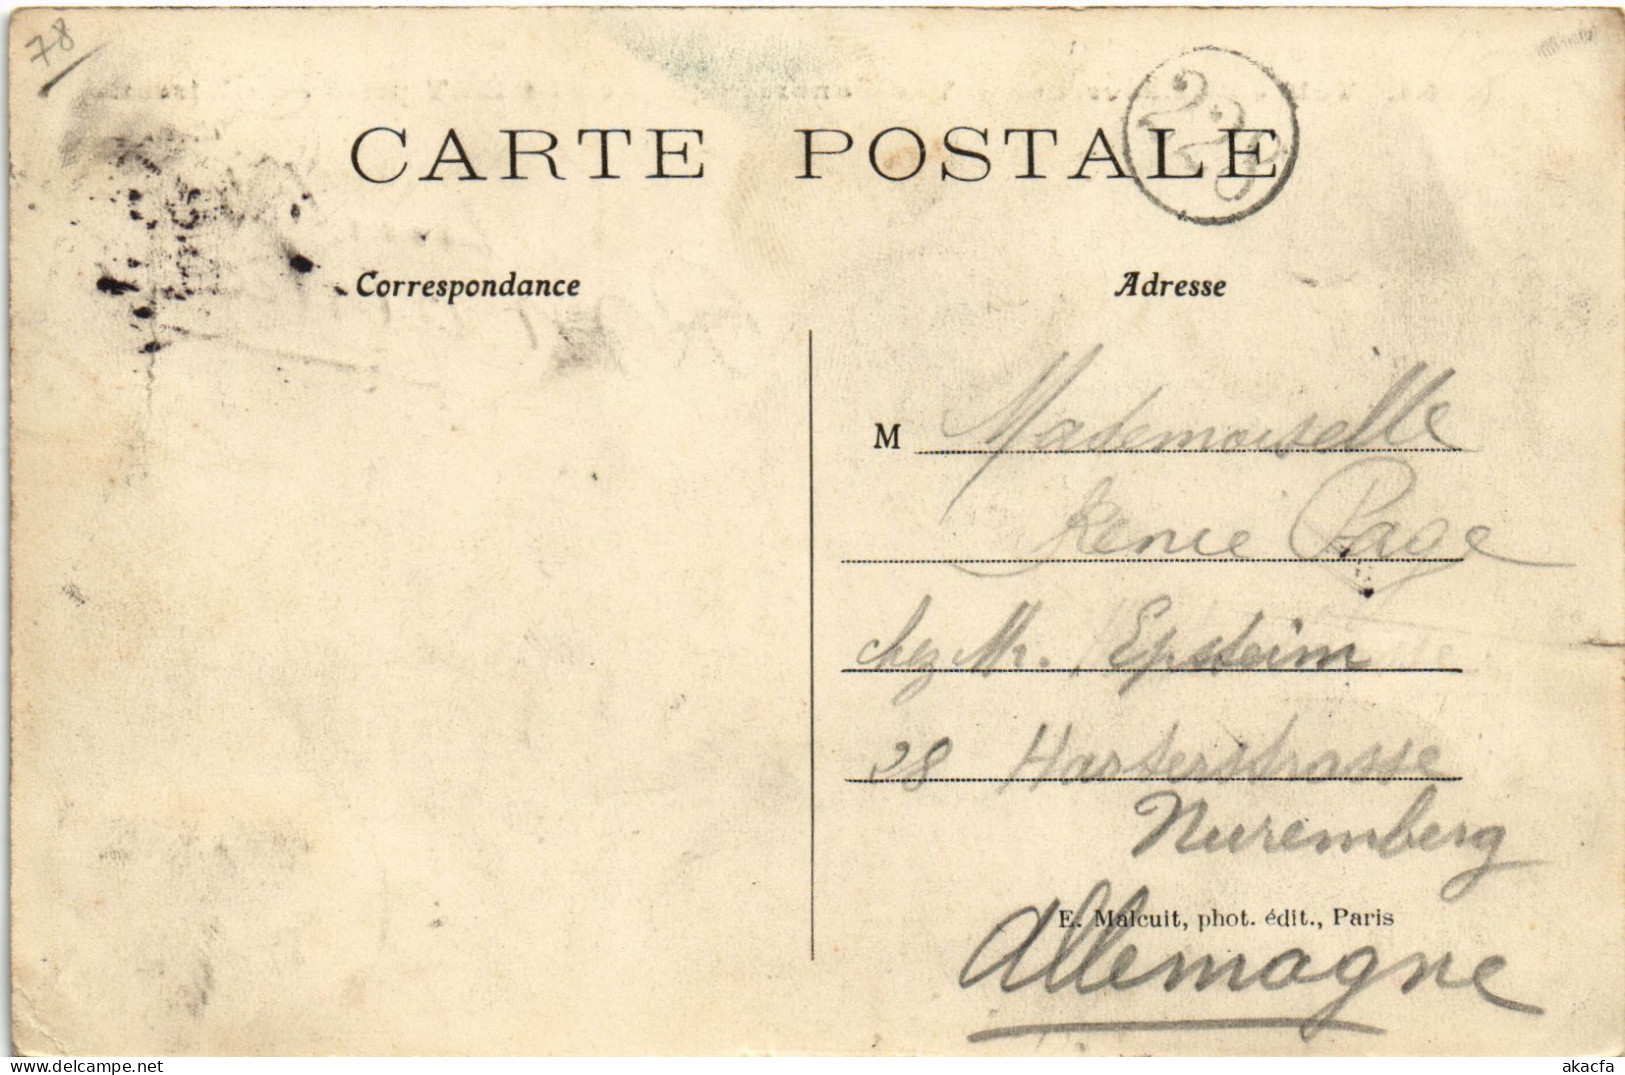 78
CARTE POSTALE
Correspondance
Adresse
M Mademoiselle
Renée Page
chez Mr. Epsteim
28 Harserstrasse
Nuremberg
E. Malcuit, phot. édit., Paris
Allemagne
akacfa